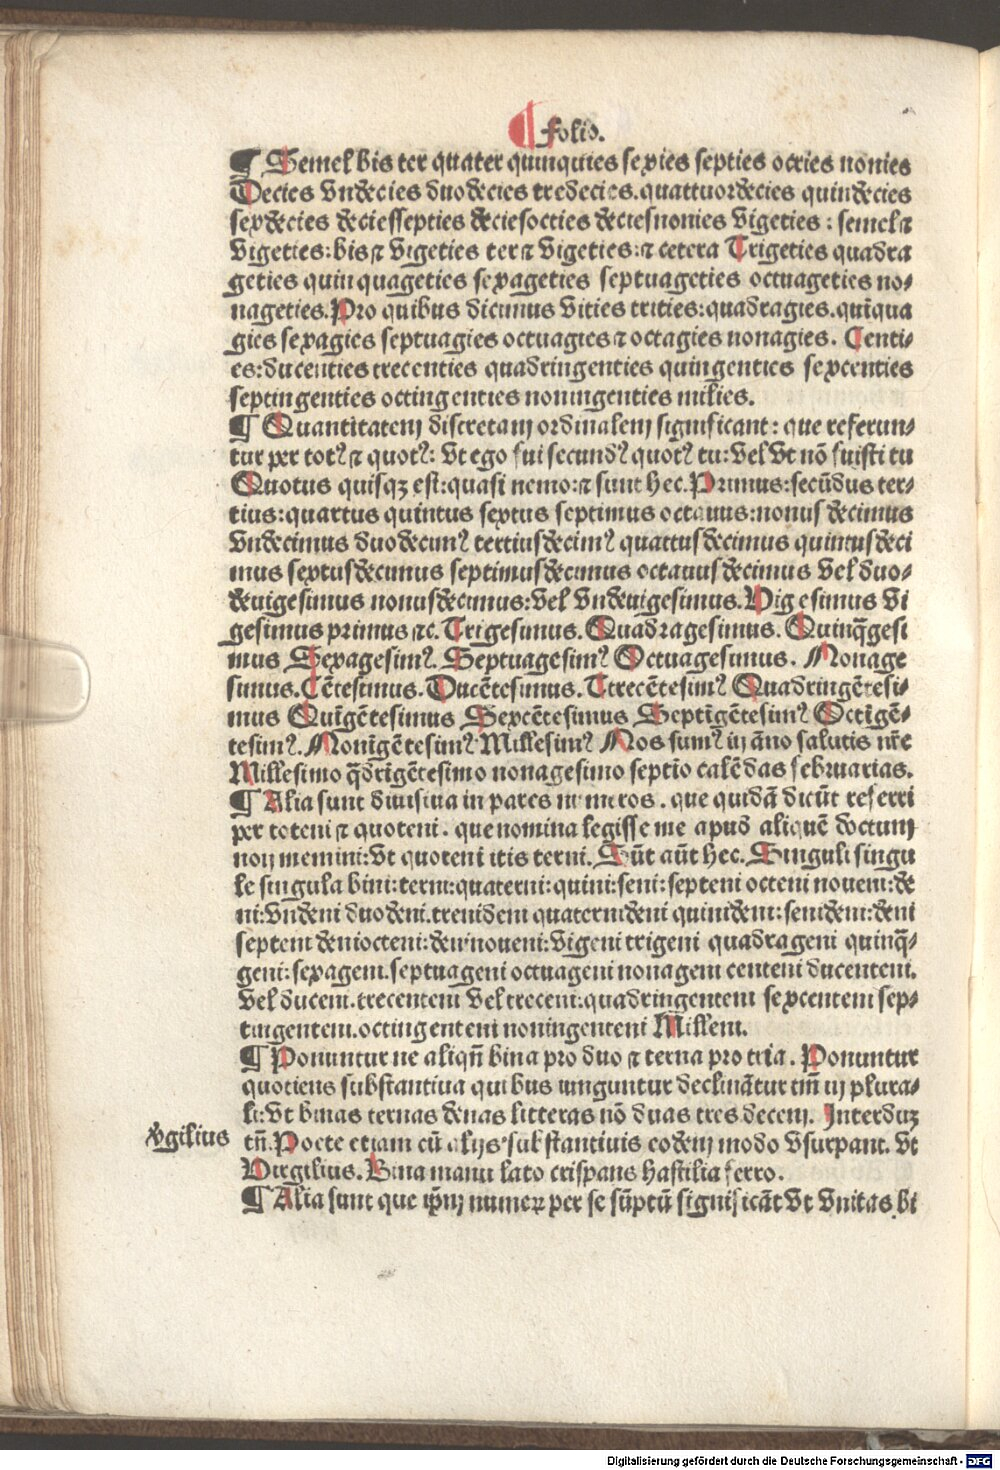 ¶ folio.
¶ Semel bis ter quater quinquies sexies septies octies nonies
Decies Vndecies duodecies tredecies. quattuordecies quindecies
sexdecies deciessepties deciesocties deciesnonies Vigeties: semel⁊
Vigeties: bis⁊ Vigeties ter⁊ Vigeties: ⁊ cetera Trigeties quadra
geties quinquageties sexageties septuageties octuageties no-
nageties. Pro quibus dicimus Vities trities: quadragies. quīqua
gies sexagies septuagies octuagies ⁊ octagies nonagies. Centi-
es: ducenties trecenties quadringenties quingenties sexcenties
septingenties octingenties noningenties milies.
¶ Quantitatem discretam ordinalem significant: que referun-
tur per totꝰ ⁊ quotꝰ: Vt ego fui secundꝰ quotꝰ tu: Vel Vt nō fuisti tu
Quotus quisqꝫ est: quasi nemo: ⁊ sunt hec. Primus: secūdus ter-
tius: quartus quintus sextus septimus octauus: nonus decimus
Vndecimus duodecimꝰ tertiusdecimꝰ quattusdecimus quintusdeci
mus sextusdecimus septimusdecimus octauusdecimus Vel duo-
deuigesimus nonusdecimus: Vel Vndeuigesimus. Vigesimus Vi
gesimus primus ⁊c. Trigesimus. Quadragesimus. Quinq̄gesi
mus Sexagesimꝰ. Septuagesimꝰ Octuagesimus. Nonage
simus. Cētesimus. Ducētesimus. Ttrecētesimꝰ Quadringētesi-
mus Quīgētesimus Sexcētesimus Septīgētesimꝰ Octīgē-
tesimꝰ. Nonīgētesimꝰ Millesimꝰ Nos sumꝰ in āno salutis nr̄e
Millesimo q̄drigētesimo nonagesimo septīo calēdas februarias.
¶ Alia sunt diuisiua in pares numeros. que quidā dicūt referri
per toteni ⁊ quoteni. que nomina legisse me apud aliquē doctum
non memini: Vt quoteni itis terni. Sūt aūt hec. Singuli singu
le singula bini: terni: quaterni: quini: seni: septeni octeni noueni: de
ni: Vndeni duodeni. trenideni quaternideni quinideni: senideni: deni
septeni deniocteni: deninoueni: Vigeni trigeni quadrageni quinq̄-
geni: sexageni. septuageni octuageni nonageni centeni ducenteni.
Vel duceni. trecenteni Vel treceni: quadringenteni sexcenteni sep-
tingenteni. octingenteni noningenteni Milleni.
¶ Ponuntur ne aliqn̄ bina pro duo ⁊ terna pro tria. Ponuntur
quotiens substantiua quibus iunguntur declināτur tm̄ in plura-
li: Vt binas ternas denas litteras nō duas tres decem. Interduꝫ
tn̄. Poete etiam cū alijs substantiuis eodem modo Vsurpant. Vt
Virgilius. Bina manu lato crispans hastilia ferro.
Virgilius
¶ Alia sunt que ip̄m numeꝝ per se sūptū significāt Vt Vnitas. bi
Digitalisierung gefördert durch die Deutsche Forschungsgemeinschaft - DFG